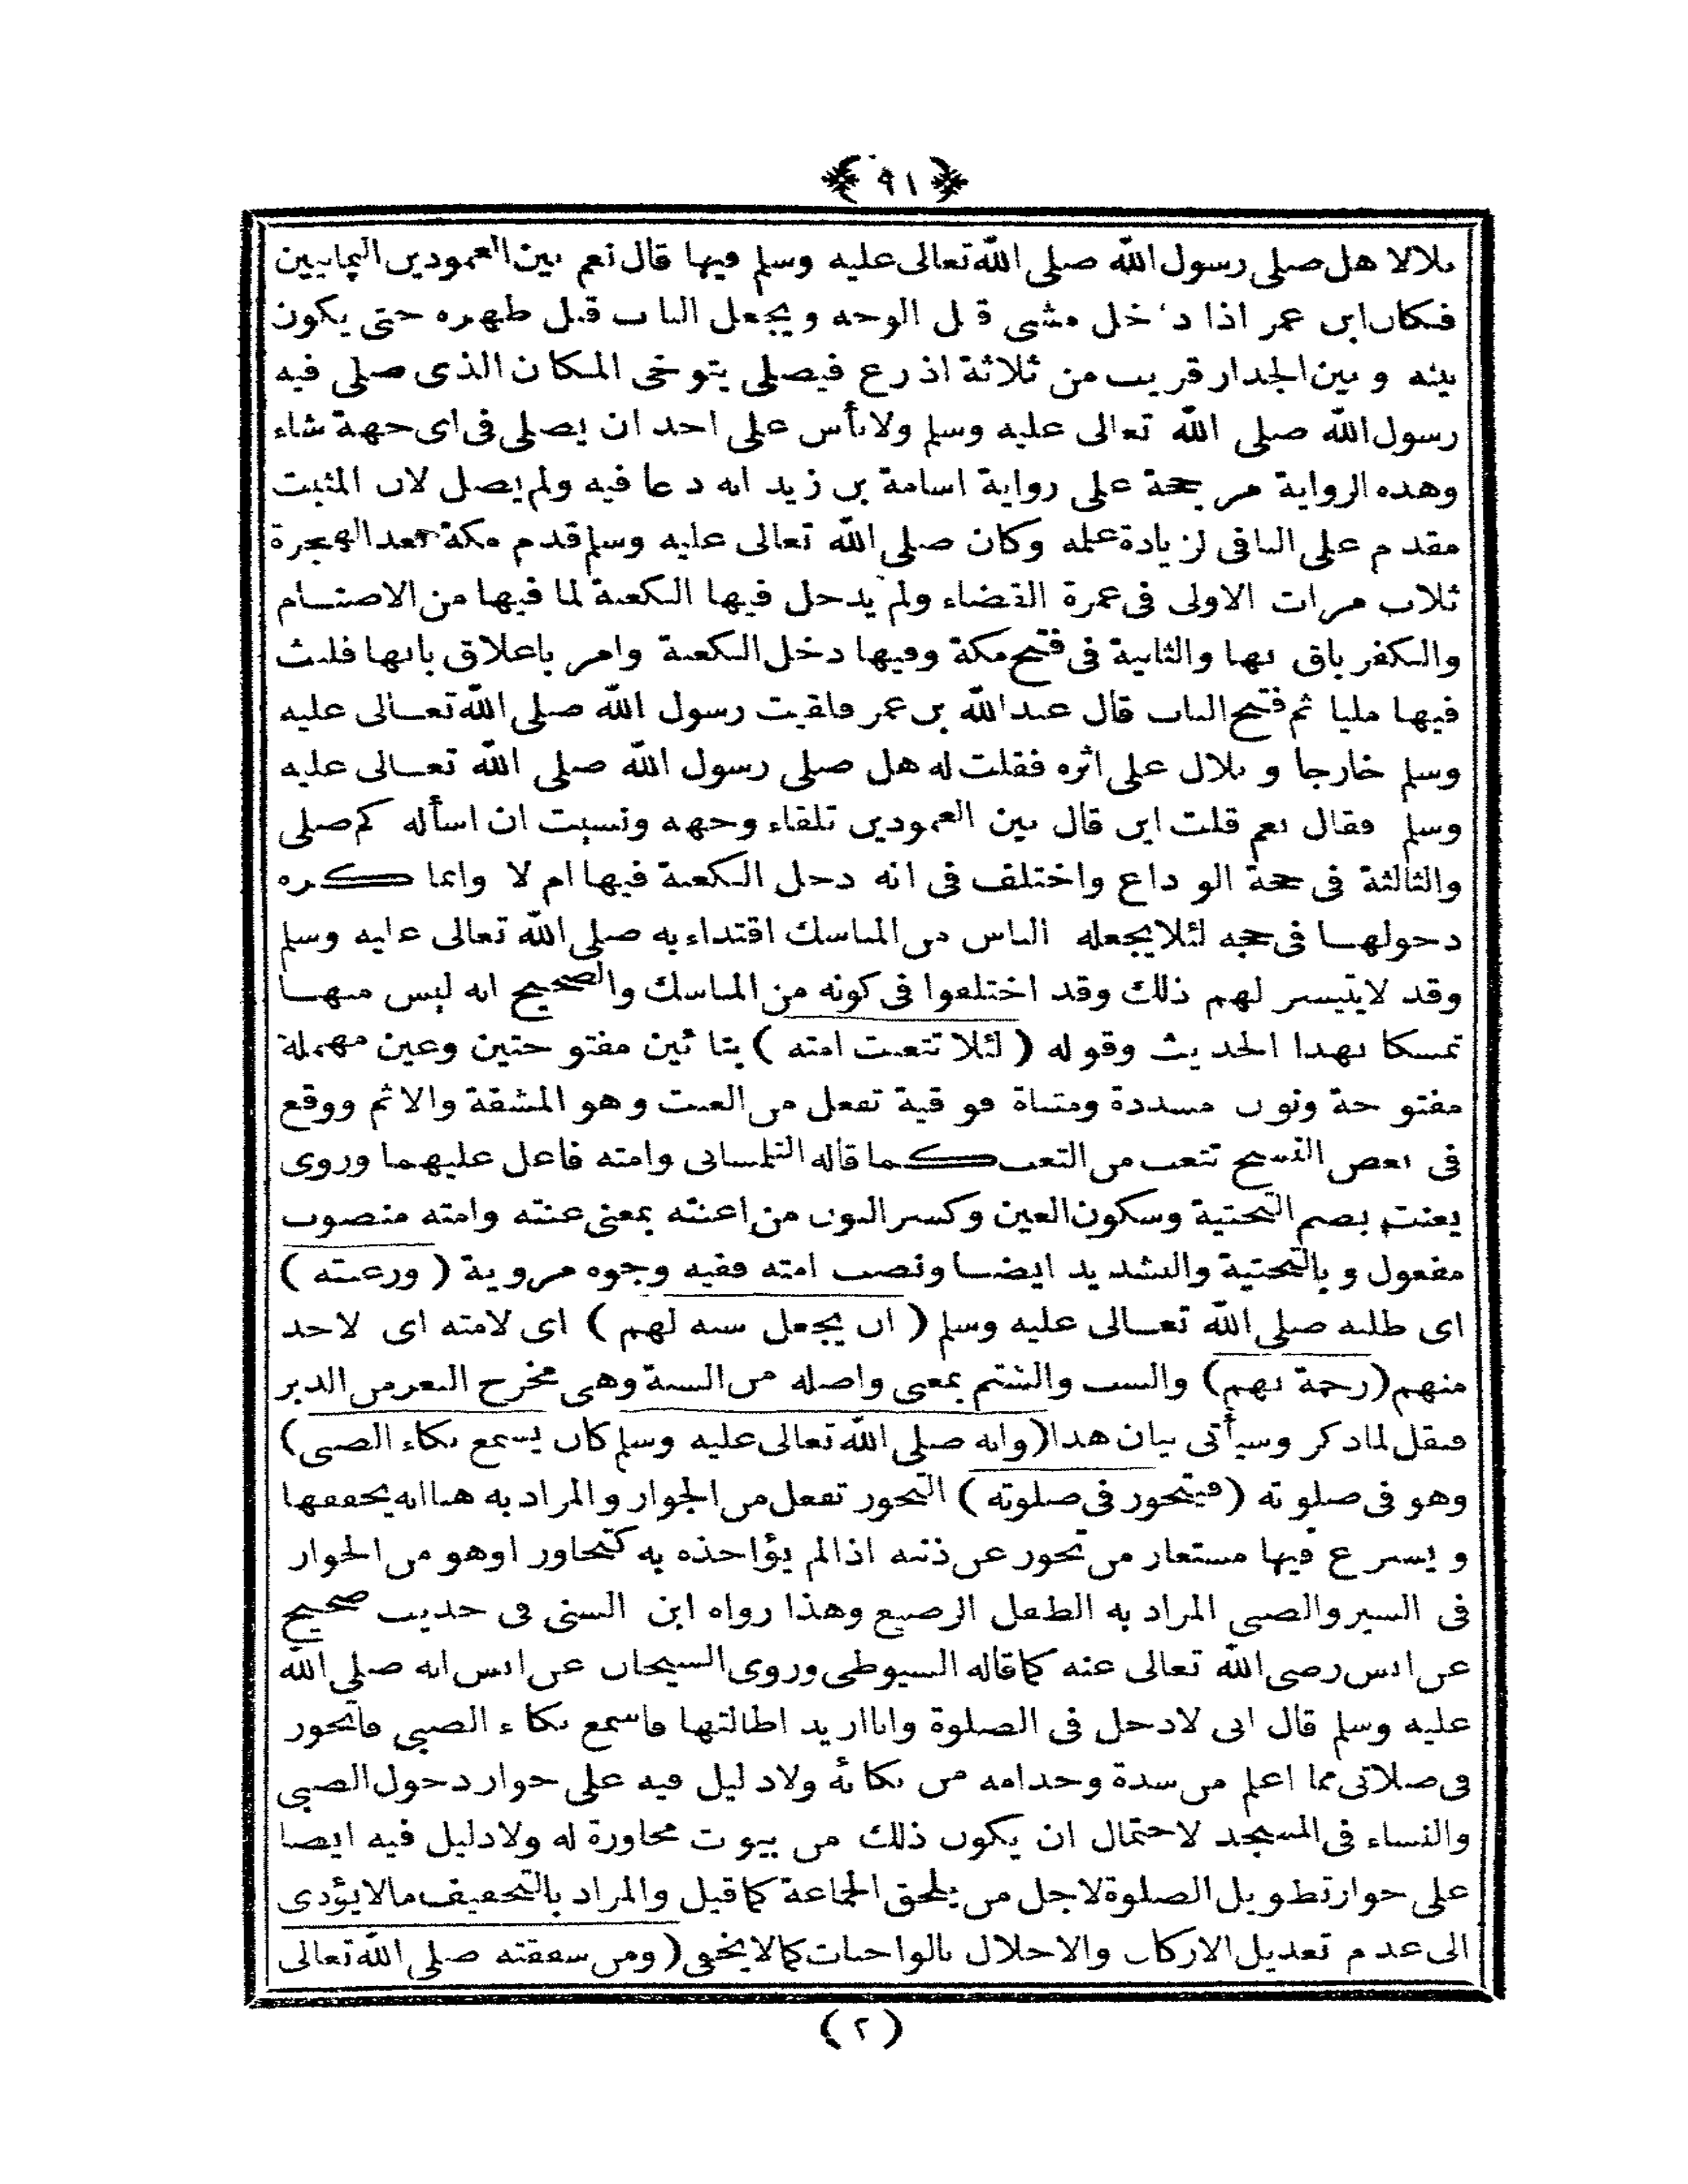 ﴿ ٩١ ﴾
بلالا هل صلى رسول الله صلى الله تعالى عليه وسلم فيها قال نعم بين العمودين اليمانيين
فكان ابن عمر اذا دخل مشى قبل الوجه ويجعل الباب قبل ظهره حتى يكون
بينه وبين الجدار قريب من ثلاثة اذرع فيصلى يتوخى المكان الذى صلى فيه
رسول الله صلى الله تعالى عليه وسلم ولا بأس على احد ان يصلى فى اى جهة شاء
وهذه الرواية مرجحة على رواية اسامة بن زيد انه دعا فيه ولم يصل لان المثبت
مقدم على النافى لزيادة علمه وكان صلى الله تعالى عليه وسلم قدم مكة بعد الهجرة
ثلاث مرات الاولى فى عمرة القضاء ولم يدخل فيها الكعبة لما فيها من الاصنام
والكفر باق بها والثانية فى فتح مكة وفيها دخل الكعبة وامر باغلاق بابها فلبث
فيها مليا ثم فتح الباب قال عبد الله بن عمر فلقيت رسول الله صلى الله تعالى عليه
وسلم خارجا و بلال على اثره فقلت له هل صلى رسول الله صلى الله تعالى عليه
وسلم فقال نعم قلت اين قال بين العمودين تلقاء وجهه ونسيت ان اسأله كم صلى
والثالثة فى حجة الوداع واختلف فى انه دخل الكعبة فيها ام لا وانما كره
دخولها فى حجه لئلا يجعله الناس من المناسك اقتداء به صلى الله تعالى عليه وسلم
وقد لا يتيسر لهم ذلك وقد اختلفوا فى كونه من المناسك والصحيح انه ليس منها
تمسكا بهذا الحديث وقوله ( لئلا تتعنت امته ) بتائين مفتوحتين وعين مهملة
مفتوحة ونون مشددة ومثناة فوقية تفعل من العنت وهو المشقة والاثم ووقع
فى بعض النسخ تتعب من التعب كما قاله التلمسانى وامته فاعل عليهما وروى
يعنت بضم التحتية وسكون العين وكسر النون من اعنته بمعنى عنته وامته منصوب
مفعول و بالتحتية والتشديد ايضا ونصب امته ففيه وجوه مروية ( ورغبته )
اى طلبه صلى الله تعالى عليه وسلم ( ان يجعل سبه لهم ) اى لامته اى لاحد
منهم (رحمة بهم) والسب والشتم بمعنى واصله من السبة وهى مخرج البعر من الدبر
فنقل لما ذكر وسيأتى بيان هذا (وانه صلى الله تعالى عليه وسلم كان يسمع بكاء الصبى)
وهو فى صلوته (فيتجوز فى صلوته ) التجوز تفعل من الجواز والمراد به هنا انه يخففها
و يسرع فيها مستعار من تجوز عن ذنبه اذا لم يؤاخذه به كتجاوز اوهو من الجواز
فى السير والصبى المراد به الطفل الرضيع وهذا رواه ابن السنى فى حديث صحيح
عن انس رضى الله تعالى عنه كما قاله السيوطى وروى الشيخان عن انس انه صلى الله
عليه وسلم قال انى لادخل فى الصلوة وانا اريد اطالتها فاسمع بكاء الصبى فاتجوز
فى صلاتى مما اعلم من شدة وجد امه من بكائه ولا دليل فيه على جواز دخول الصبى
والنساء فى المسجد لاحتمال ان يكون ذلك من بيوت مجاورة له ولا دليل فيه ايضا
على جواز تطويل الصلوة لاجل من يلحق الجماعة كما قيل والمراد بالتخفيف ما لا يؤدى
الى عدم تعديل الاركان والاخلال بالواجبات كما لا يخفى (ومن شفقته صلى الله تعالى
( ٢ )